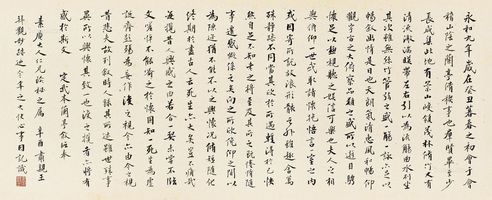 永和九年歲在癸丑暮春之初會于會
稽山陰之蘭亭脩稧事也群賢畢至少
長咸集此地有崇山峻領茂林脩竹又有
清流激湍暎帶左右引以為流觴曲水列坐
其次雖無絲竹管弦之盛一觴一詠亦足以
暢敘幽情是日也天朗氣清惠風和暢仰
觀宇宙之大俯察品類之盛所以遊目騁
懷足以極視聽之娛信可樂也夫人之相
與俯仰一世或取諸懷抱悟言一室之內
或因寄所託放浪形骸之外雖趣舍萬
殊靜躁不同當其欣於所遇蹔得於己快
然自足不知老之將至及其所之既惓情隨
事遷感慨係之矣向之所欣俛仰之間以
為陳迹猶不能不以之興懷況脩短隨化
終期於盡古人云死生亦大矣豈不痛哉
每攬昔人興感之由若合一契未嘗不臨
文嗟悼不能喻之於懷固知一死生為虛
誕齊彭殤為妄作後之視今亦由今之視
昔悲夫故列敘時人錄其所述雖世殊事
異所以興懷其致一也後之攬者亦將有
感於斯文 定武本蘭亭
大仁兄 之屬 辛酉 肅親王
之大快心事因記